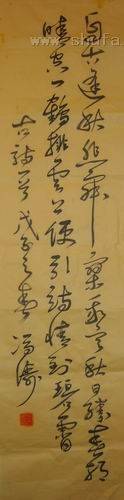 自古逢秋悲寂寥我言秋日胜春朝
晴空一鹤排云上便引诗情到碧霄
古诗一首戊子之春